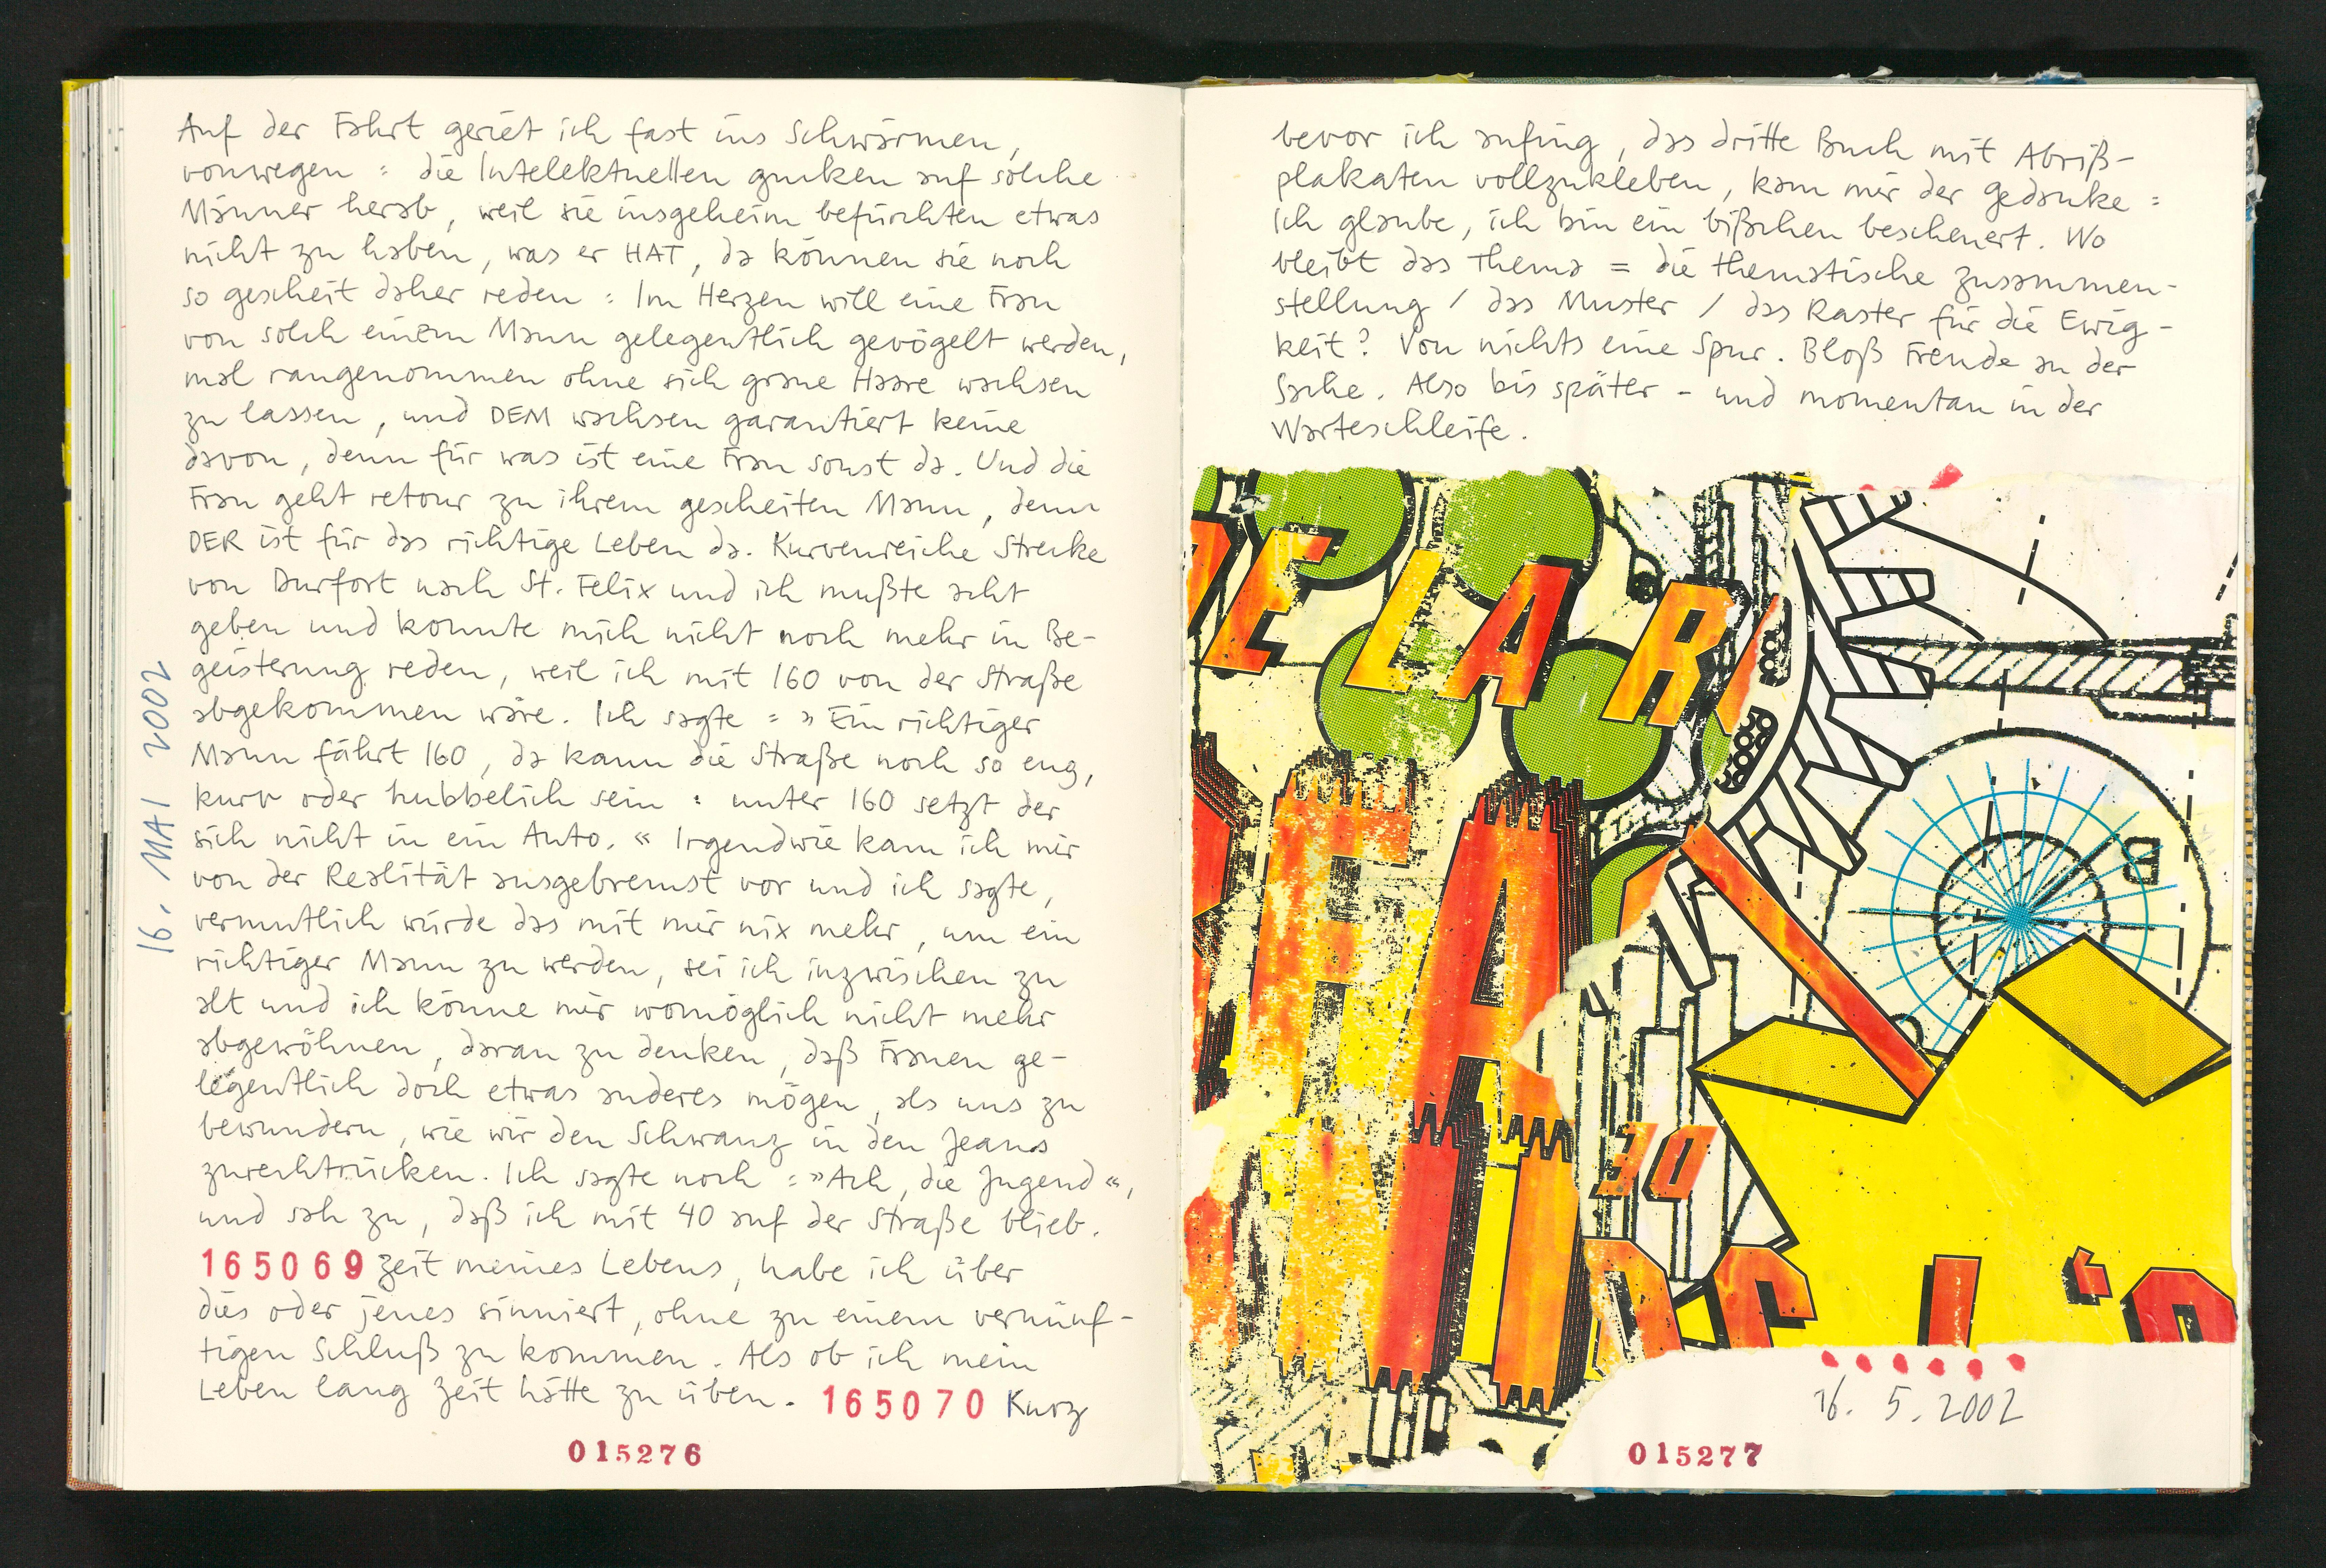 Auf der Fahrt geriet ich fast ins Schwärmen,
vonwegen : die Intelektuellen gucken auf solche
Männer herab, weil sie insgeheim befürchten etwas
nicht zu haben, was er HAT, da können sie noch
so gescheit daher reden : Im Herzen will eine Frau
von solch einem Mann gelegentlich gevögelt werden,
mal rangenommen ohne sich graue Haare wachsen
zu lassen, und DEM wachsen garantiert keine
davon, denn für was ist eine Frau sonst da. Und die
Frau geht retour zu ihrem gescheiten Mann, denn
DER ist für das richtige Leben da. Kurvenreiche Strecke
von Durfort nach St. Felix und ich mußte acht
geben und konnte mich nicht noch mehr in Be-
geisterung reden, weil ich mit 160 von der Straße
abgekommen wäre. Ich sagte : »Ein richtiger
Mann fährt 160, da kann die Straße noch so eng,
kurv oder hubbelich sein : unter 160 setzt der
sich nicht in ein Auto.« Irgendwie kam ich mir
von der Realität ausgebremst vor und ich sagte,
vermutlich würde das mit mir nix mehr, um ein
richtiger Mann zu werden, sei ich inzwischen zu
alt und ich könne mir womöglich nicht mehr
abgewöhnen, daran zu denken, daß Frauen ge-
legentlich doch etwas anderes mögen, als uns zu
bewundern, wie wir den Schwanz in den Jeans
zurechtrücken. Ich sagte noch : »Ach, die Jugend«,
und sah zu, daß ich mit 40 auf der Straße blieb.
165069 Zeit meines Lebens, habe ich über
dies oder jenes sinniert, ohne zu einem vernünf-
tigen Schluß zu kommen. Als ob ich mein
Leben lang Zeit hätte zu üben. 165070 Kurz
015276
16. MAI 2002
bevor ich anfing, das dritte Buch mit Abriß-
plakaten vollzukleben, kam mir der Gedanke :
Ich glaube, ich bin ein bißchen bescheuert. Wo
bleibt das Thema = die thematische Zusammen-
stellung / das Muster / das Raster für die Ewig-
keit? Von nichts eine Spur. Bloß Freude an der
Sache. Also bis später - und momentan in der
Warteschleife.
DE LA R
FA
30
B
DE L'O
16. 5. 2002
015277